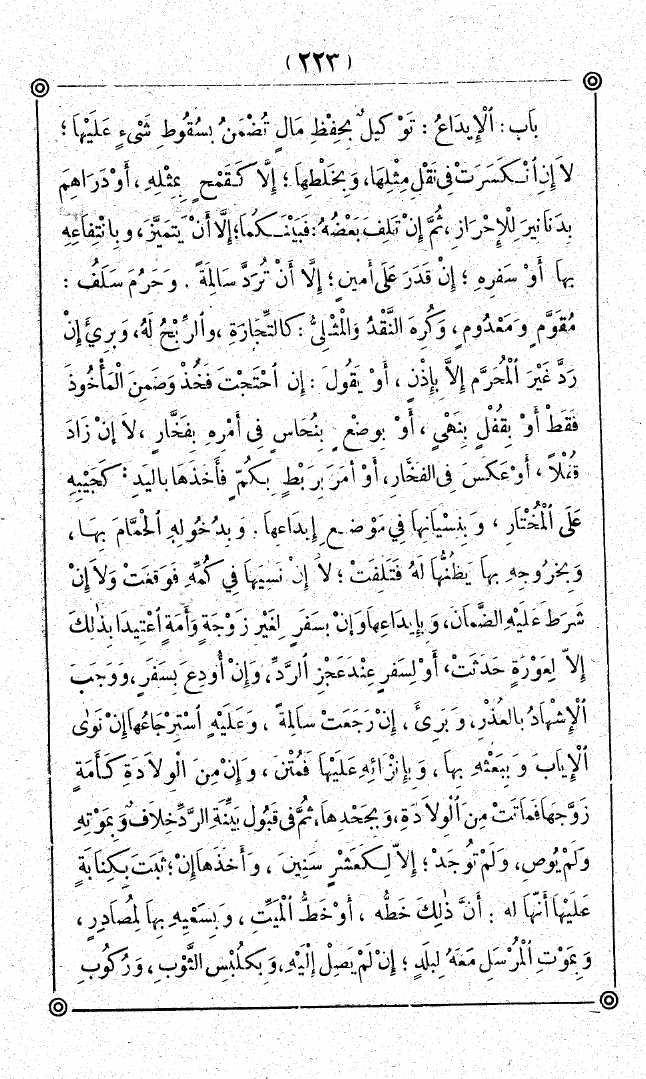 (٢٢٣)
بَاب: اَلْإِيدَاعُ: تَوْكِيلٌ بِحِفْظِ مَالٍ تُضْمَنُ بِسُقُوطِ شَىْءٍ عَلَيْهَا؛
لاَ إِنِ اُنْكَسَرَتْ فِى نَقْلِ مِثْلِهَا، وَبِخَلْطِهَا؛ إِلَّا كَقَمْحٍ بِمِثْلِهِ، أَوْ دَرَاهِمَ
بِدَنَانِيرَ لِلْإِحْرَازِ، ثُمَّ إِنْ تَلِفَ بَعْضُهُ: فَبَيْنَكُمَا؛ إِلَّا أَنْ يَتَمَيَّزَ، وَبِانْتِفَاعِهِ
بِهَا أَوْ سَفَرِهِ؛ إِنْ قَدَرَ عَلَى أَمِينٍ؛ إِلَّا أَنْ تُرَدَّ سَالِمَةً. وَحَرُمَ سَلَفُ:
مُقَوَّمٍ وَمَعْدُومٍ، وَكُرِهَ النَّقْدُ وَالْمِثْلِىُّ: كَالتِّجَارَةِ، وَالرِّبْحُ لَهُ، وَبَرِئَ إِنْ
رَدَّ غَيْرَ اَلْمُحَرَّمِ إِلاَّ بِإِذْنٍ، أَوْ يَقُولَ: إِنِ احْتَجْتَ فَخُذْ وَضَمِنَ الْمَأْخُوذَ
فَقَطْ أَوْ بِقُفْلٍ بِنَهْىٍ، أَوْ بِوَضْعٍ بِنُحَاسٍ فِى أَمْرِهِ بِفَخَّارٍ، لاَ إِنْ زَادَ
قُفْلاً، أَوْ عَكَسَ فِى الفَخَّارِ، أَوْ أَمَرَ بِرَبْطٍ بِكُمٍّ فَأَخَذَهَا بِاليَدِ: كَجَيْبِهِ
عَلَى اَلْمُخْتَارِ، وَبِنِسْيَانِهَا فِي مَوْضِعِ إِيدَاعِهَا. وَبِدُخُولِهِ اَلْحَمَّامَ بِهَا،
وَبِخُرُوجِهِ بِهَا يَظُنُّهَا لَهُ فَتَلِفَتْ؛ لاَ إِنْ نَسِيَهَا فِي كُمِّهِ فَوَقَعَتْ وَلاَ إِنْ
شَرَطَ عَلَيْهِ الضَّمَانَ، وَبِإِيدَاعِهَا وَإِنْ بِسَفَرٍ لِغَيْرِ زَوْجَةٍ وَأَمَةٍ اُعْتِيدَا بِذٰلِكَ
إِلاَّ لِعَوْرَةٍ حَدَثَتْ، أَوْ لِسَفَرٍ عِنْدَ عَجْزِ اَلرَّدِّ، وَإِنْ أُودِعَ بِسَفَرٍ، وَوَجَبَ
اَلْإِشْهَادُ بِالعُذْرِ، وَبَرِئَ، إِنْ رَجَعَتْ سَالِمَةً، وَعَلَيْهِ اُسْتِرْجَاعُهَا إِنْ نَوَى
اَلْإِيَابَ وَبِبَعْثِهِ بِهَا، وَبِإِنْزَائِهِ عَلَيْهَا فَمُتْنَ، وَإِنْ مِنَ الْوِلاَدَةِ كَأَمَةٍ
زَوَّجَهَا فَمَاتَتْ مِنَ اَلْوِلاَدَةِ، وَبِجَحْدِهَا، ثُمَّ فِى قَبُولِ بَيِّنَةِ الرَّدِّ خِلاَفٌ وَبِمَوْتِهِ
وَلَمْ يُوصِ، وَلَمْ تُوجَدْ؛ إِلاَّ لِكَعَشْرِ سَنِينَ، وَأَخَذَهَا إِنْ؛ ثَبَتَ بِكِتَابَةٍ
عَلَيْهَا أَنَّهَا لَه: أَنَّ ذٰلِكَ خَطُّه، أَوْ خَطُّ اَلْمَيِّتِ، وَبِسَعْيِهِ بِهَا لِمُصَادِرٍ،
وَبِمَوْتِ اَلْمُرْسَلِ مَعَهُ لِبَلَدٍ؛ إِنْ لَمْ يَصِلْ إِلَيْهِ، وَبِكَلُبْسِ الثَّوْبِ، وَرُكُوبِ